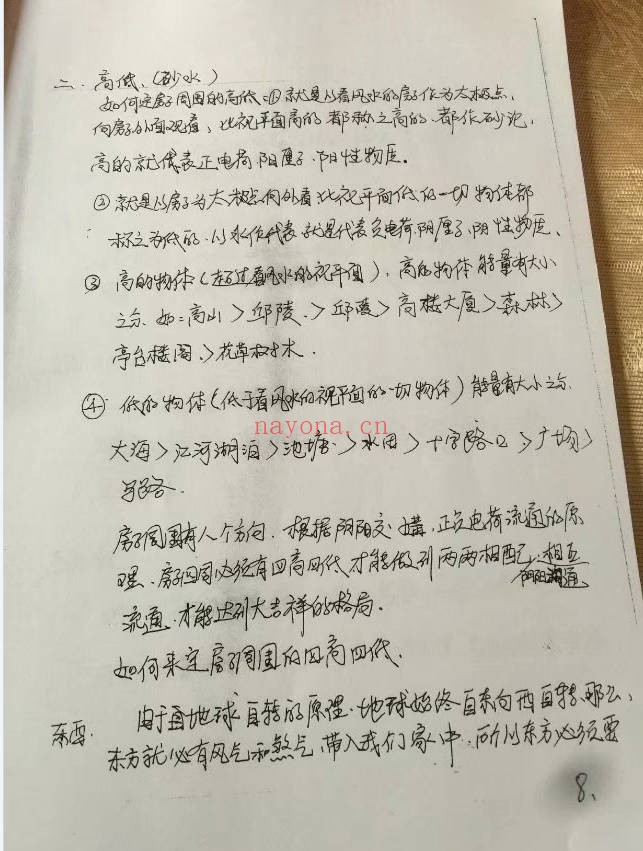 二、高低、(砂水)
如何定房子周围的高低:①就是以看风水的房子作为太极点,
向房子外面观看,比视平面高的都称之高的、都作砂论,
高的就代表正电荷阳离子、阳性物质。
②就是以房子为太极点向外看比视平面低的一切物体都
称之为低的、以水作代表就是代表负电荷阴离子、阴性物质、
③高的物体(超过看风水的视平面),高的物体能量有大小
之分、如:高山>丘陵、>丘陵>高楼大厦>森林>
亭台楼阁、>花草树木、
④低的物体(低于看风水的视平面的一切物体)能量有大小之分、
大海>江河湖泊>池塘>水田>十字路口>广场>
马路、
房子周围有八个方向、根据阴阳交媾,正负电荷流通的原
理、房子四周必须有四高四低才能做到两两相配、相互
阴阳
流通、才能达到大吉祥的格局、
如何来定房子周围的四高四低、
由于地球自转的原理、地球始终自东向西自转、那么、
东要、
东方就必有风气和煞气带入我们家中、所以东方必须要
8、
nayona.cn